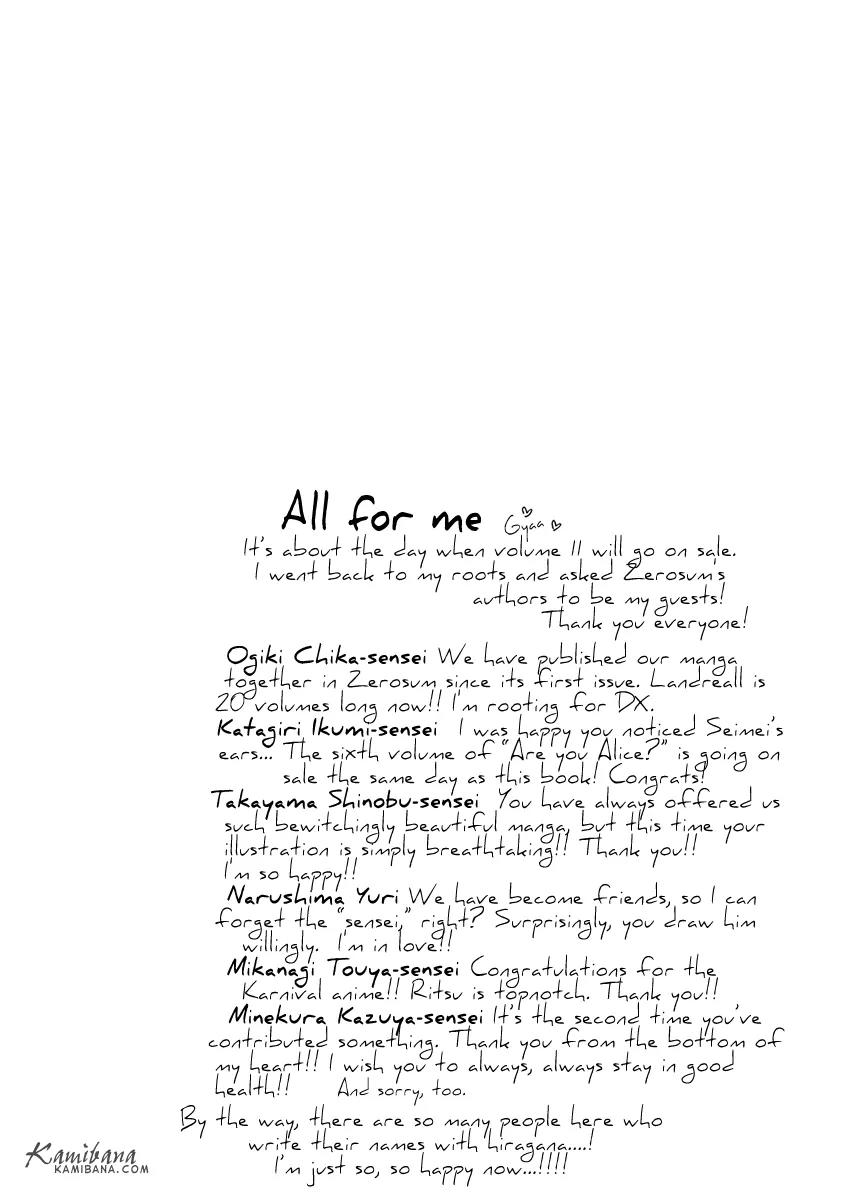 All for me Gyaa
It's about the day when volume 11 will go on sale.
I went back to my roots and asked Zerosum's
authors to be my guests!
Thank you everyone!
Ogiki Chika-sensei We have published our manga
together in Zerosum since its first issue. Landreall is
20 volumes long now!! I'm rooting for DX.
Katagiri Ikumi-sensei I was happy you noticed Seimei's
ears... The sixth volume of "Are you Alice?" is going on
sale the same day as this book! Congrats!
Takayama Shinobu-sensei You have always offered us
such bewitchingly beautiful manga, but this time your
illustration is simply breathtaking!! Thank you!!
I'm so happy!!
Narushima Yuri We have become friends, so I can
forget the "sensei," right? Surprisingly, you draw him
willingly. I'm in love!!
Mikanagi Touya-sensei Congratulations for the
Karnival anime!! Ritsu is topnotch. Thank you!!
Minekura Kazuya-sensei It's the second time you've
contributed something. Thank you from the bottom of
my heart!! I wish you to always, always stay in good
health!! And sorry, too.
By the way, there are so many people here who
write their names with hiragana....!
I'm just so, so happy now...!!!!
Kamibana
KAMIBANA.COM